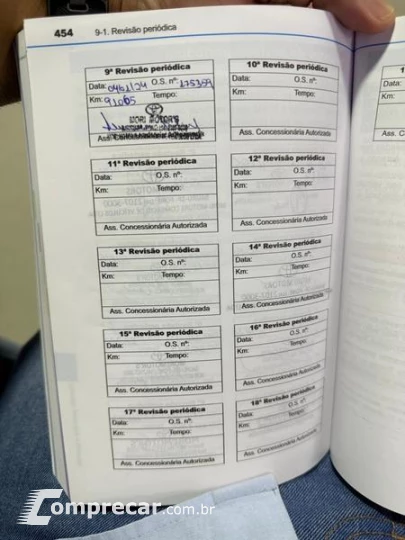 454 9-1. Revisão periódica
9ª Revisão periódica
Data: O.S. nº: 175359
Km: 91065 Tempo:
MORI MOTORS
Ass. Concessionária Autorizada
10ª Revisão periódica
Data: O.S. nº:
Km: Tempo:
Ass. Concessionária Autorizada
11ª Revisão periódica
Data: O.S. nº:
Km: Tempo:
Ass. Concessionária Autorizada
12ª Revisão periódica
Data: O.S. nº:
Km: Tempo:
Ass. Concessionária Autorizada
13ª Revisão periódica
Data: O.S. nº:
Km: Tempo:
Ass. Concessionária Autorizada
14ª Revisão periódica
Data: O.S. nº:
Km: Tempo:
Ass. Concessionária Autorizada
15ª Revisão periódica
Data: O.S. nº:
Km: Tempo:
Ass. Concessionária Autorizada
16ª Revisão periódica
Data: O.S. nº:
Km: Tempo:
Ass. Concessionária Autorizada
17ª Revisão periódica
Data: O.S. nº:
Km: Tempo:
Ass. Concessionária Autorizada
18ª Revisão periódica
Data: O.S. nº:
Km: Tempo:
Ass. Concessionária Autorizada
Comprecar.com.br